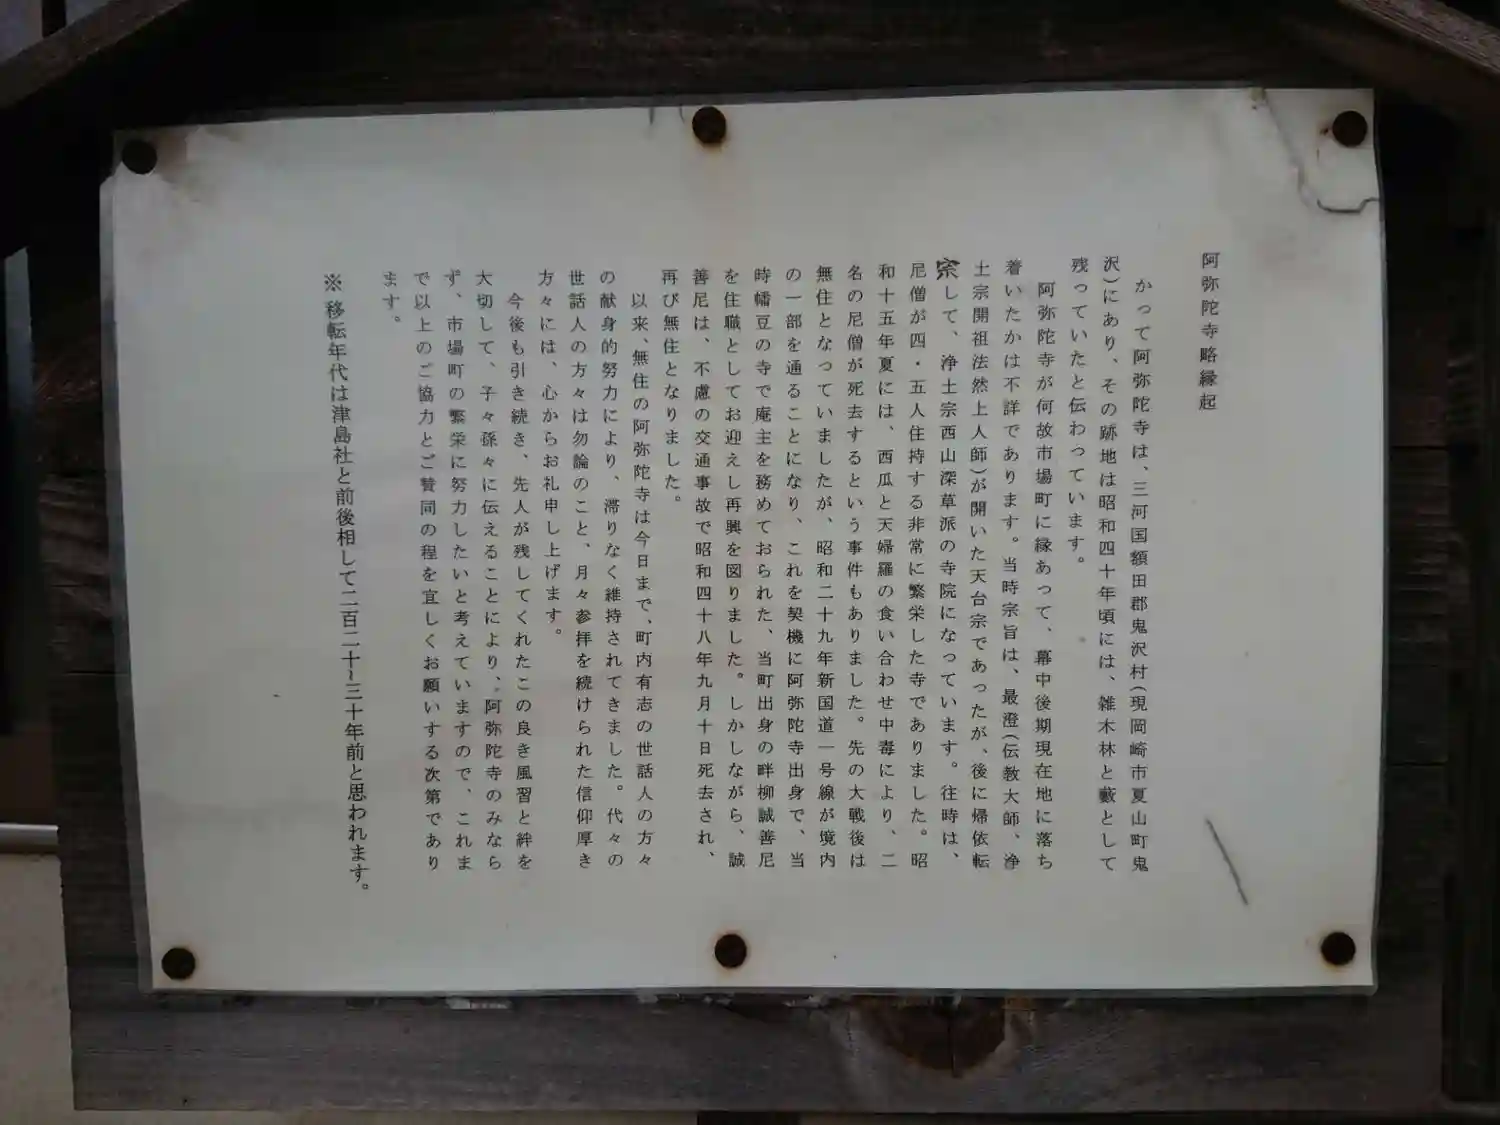 阿弥陀寺略縁起
かって阿弥陀寺は、三河国額田郡鬼沢村(現岡崎市夏山町鬼
沢)にあり、その跡地は昭和四十年頃には、雑木林と藪として
残っていたと伝わっています。
阿弥陀寺が何故市場町に縁あって、幕中後期現在地に落ち
着いたかは不詳であります。当時宗旨は、最澄(伝教大師、浄
土宗開祖法然上人師)が開いた天台宗であったが、後に帰依転
宗して、浄土宗西山深草派の寺院になっています。往時は、
尼僧が四・五人住持する非常に繁栄した寺でありました。昭
和十五年夏には、西瓜と天婦羅の食い合わせ中毒により、二
名の尼僧が死去するという事件もありました。先の大戦後は
無住となっていましたが、昭和二十九年新国道一号線が境内
の一部を通ることになり、これを契機に阿弥陀寺出身で、当
時幡豆の寺で庵主を務めておられた、当町出身の畔柳誠善尼
を住職としてお迎えし再興を図りました。しかしながら、誠
善尼は、不慮の交通事故で昭和四十八年九月十日死去され、
再び無住となりました。
以来、無住の阿弥陀寺は今日まで、町内有志の世話人の方々
の献身的努力により、滞りなく維持されてきました。代々の
世話人の方々は勿論のこと、月々参拝を続けられた信仰厚き
方々には、心からお礼申し上げます。
今後も引き続き、先人が残してくれたこの良き風習と絆を
大切して、子々孫々に伝えることにより、阿弥陀寺のみなら
ず、市場町の繁栄に努力したいと考えていますので、これま
で以上のご協力とご賛同の程を宜しくお願いする次第であり
ます。
※移転年代は津島社と前後相して二百二十~三十年前と思われます。